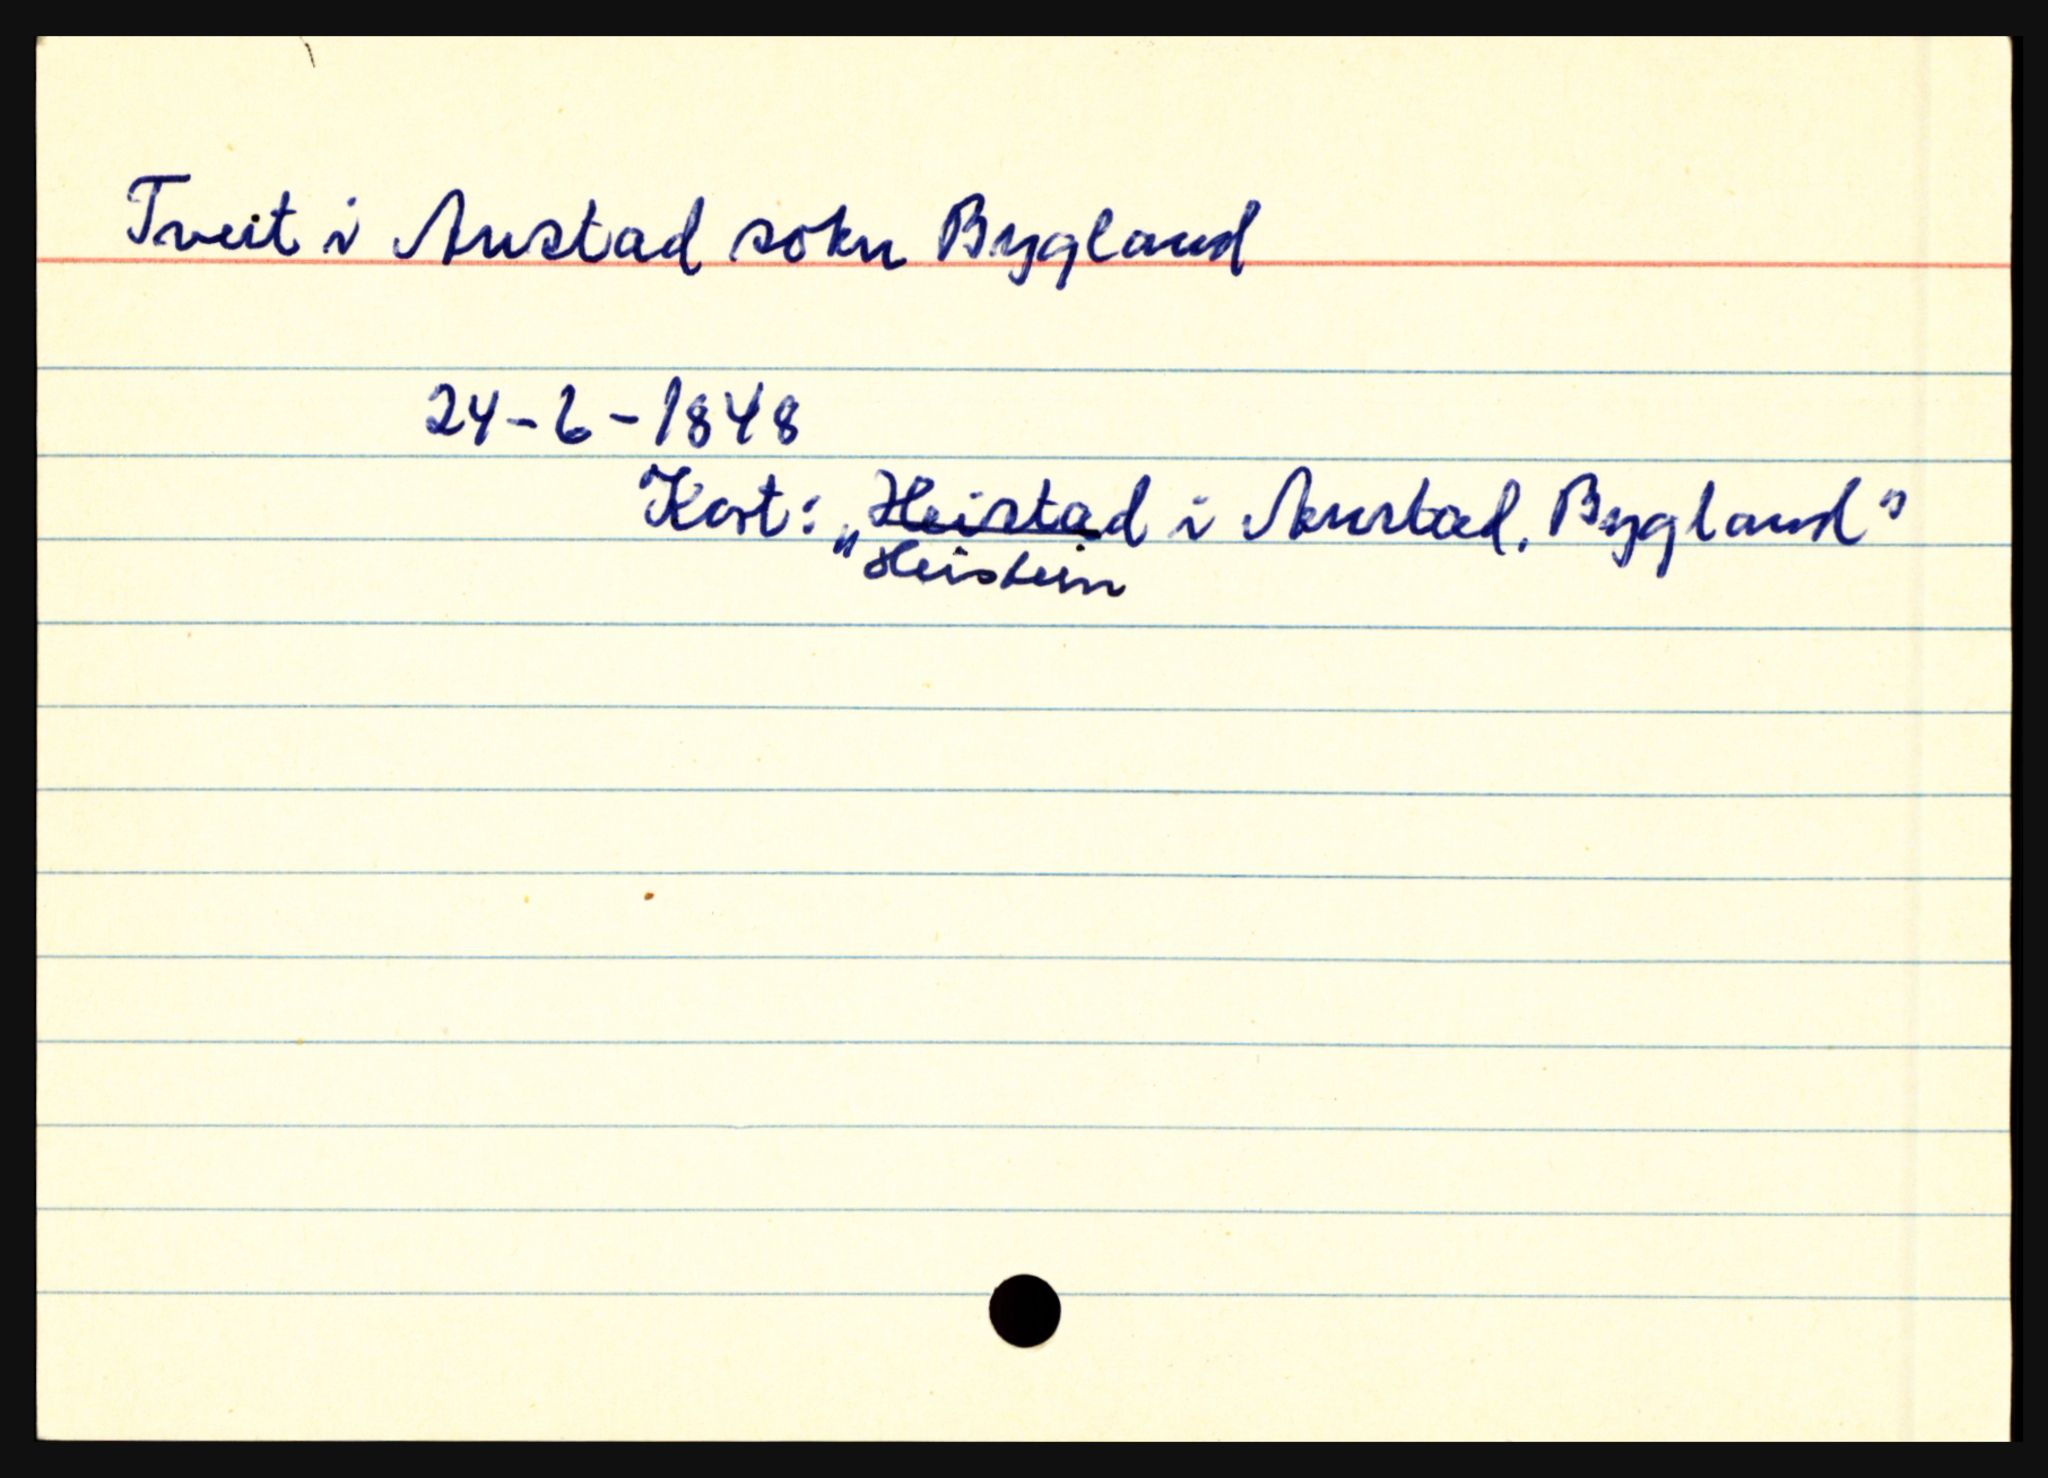 Tveit i Austad sokn Bygland
24-6-1848
Kort: „Heistad i Austad, Bygland"
"Heistein